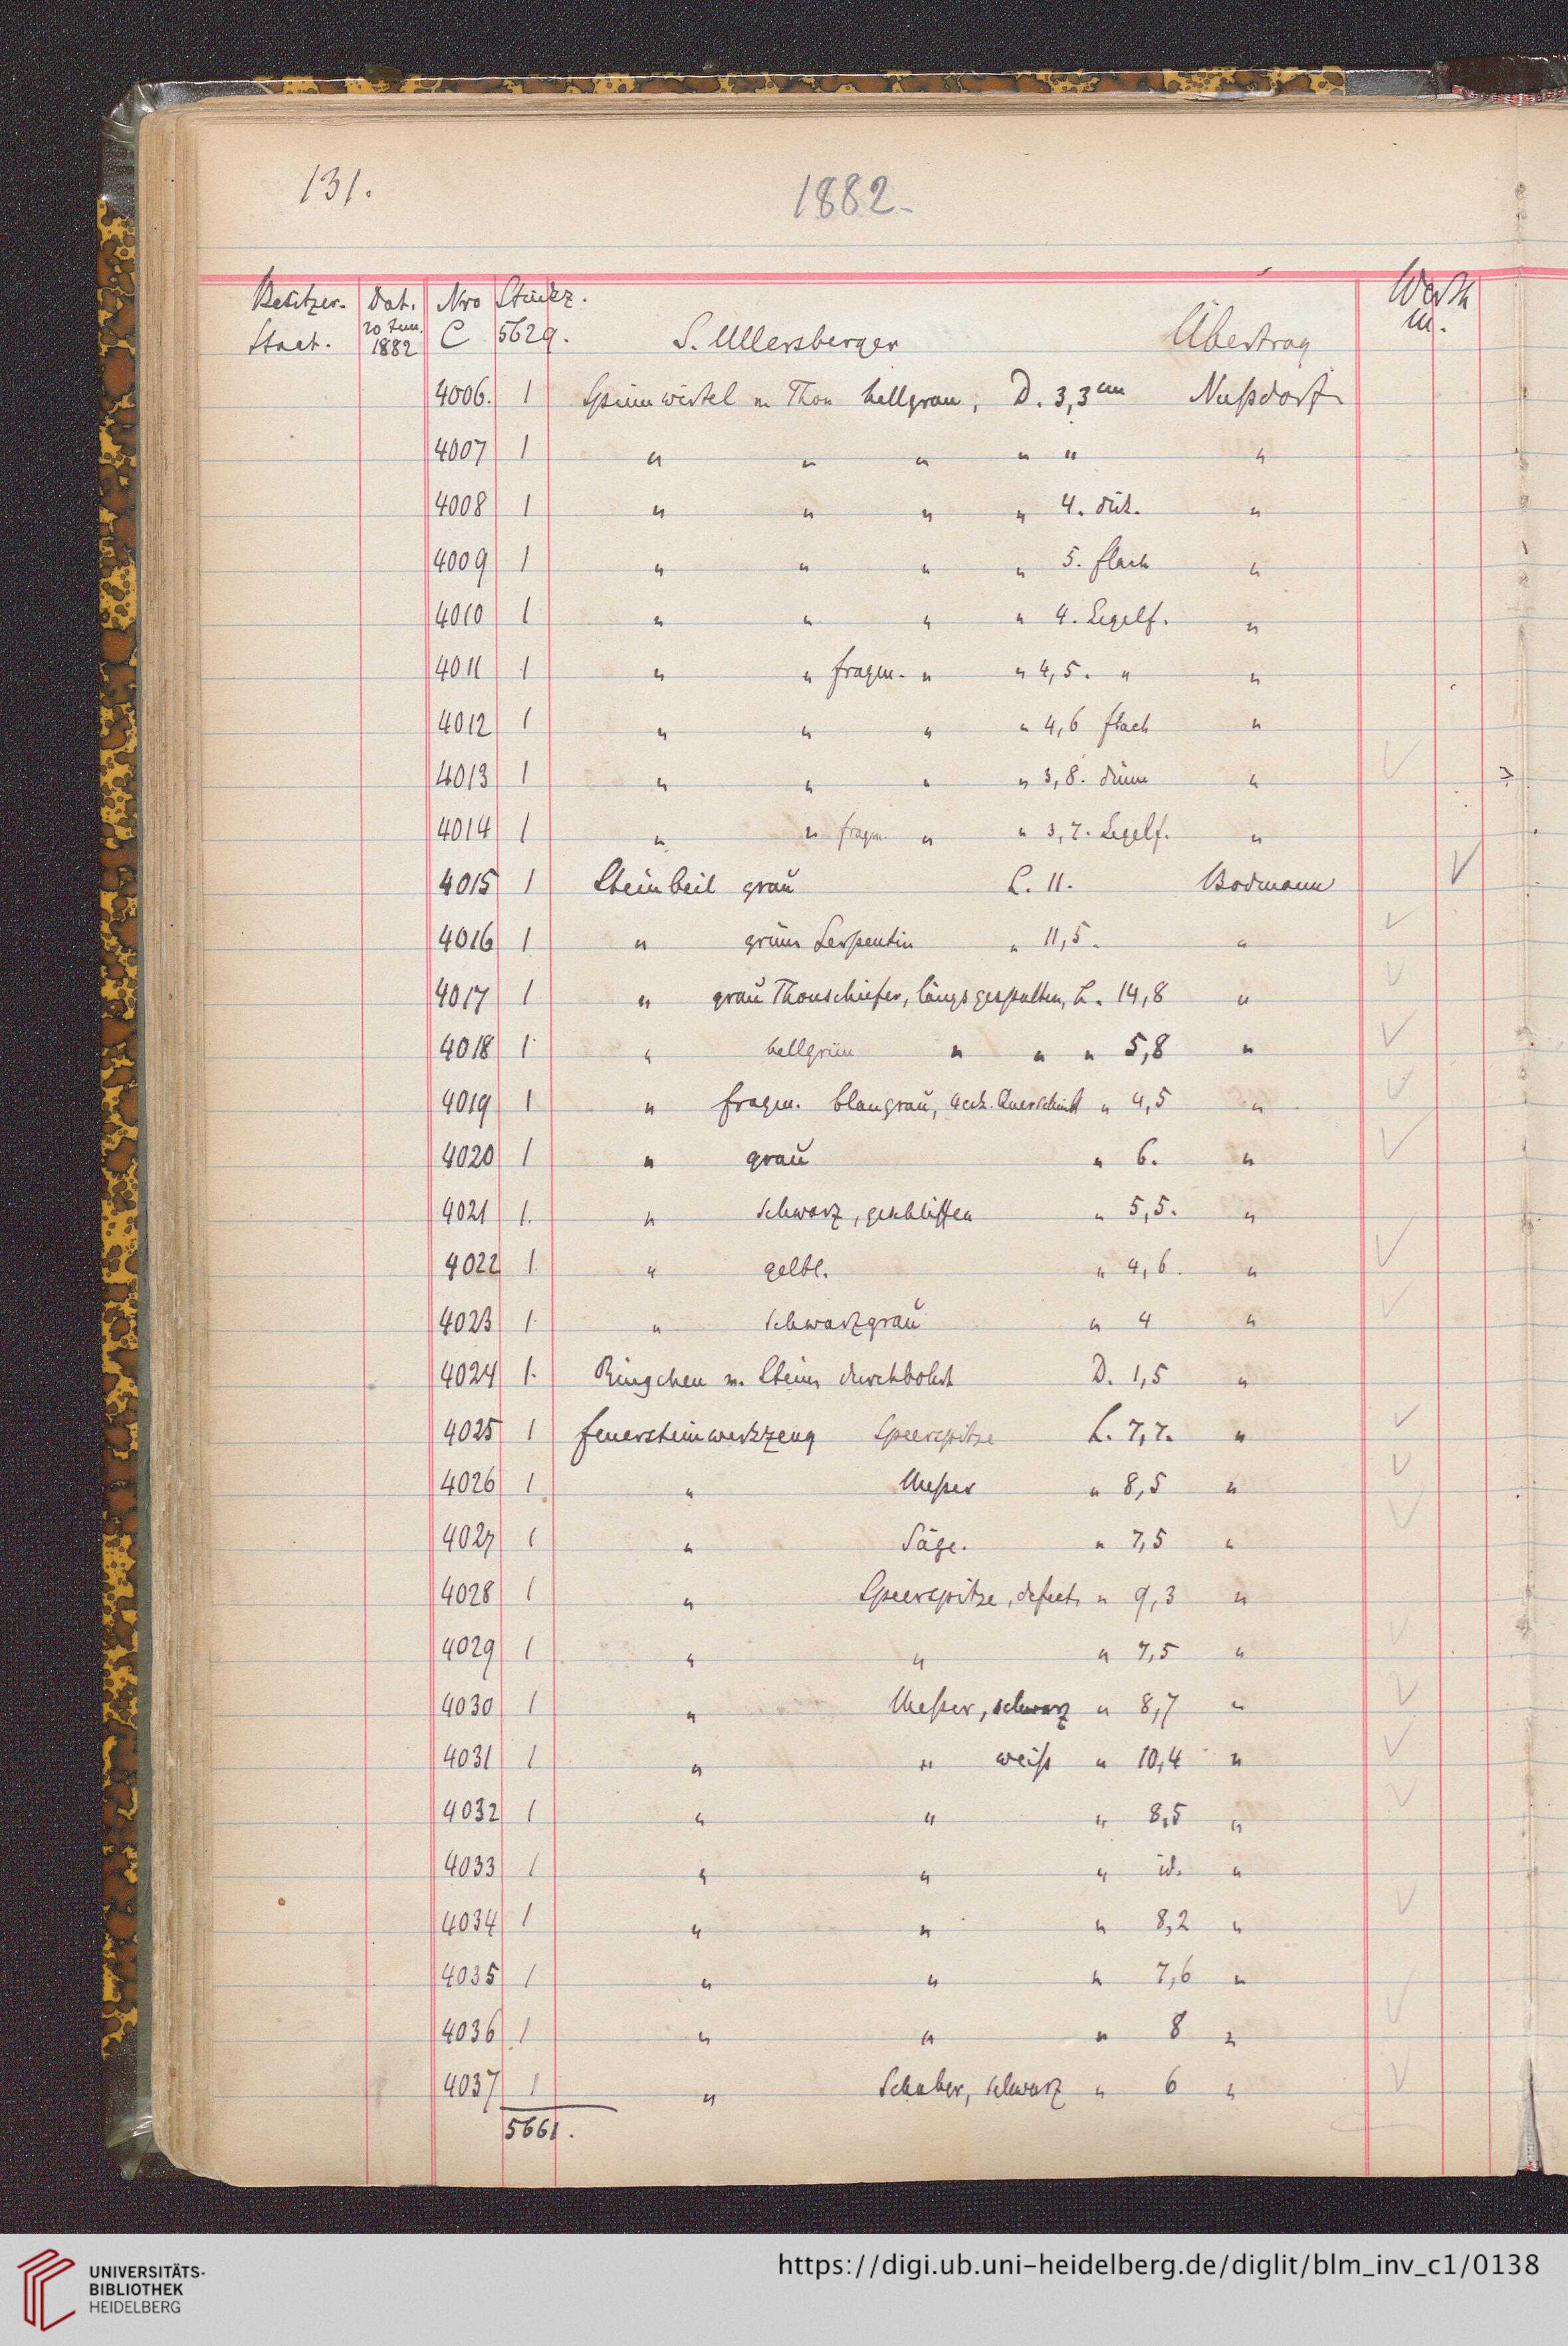 131.
1882.
Besitzer. Dat. Nro Stückz. Werth
Staat. 20 Jun. 1882 C 5629. S. Ullersberger Übertrag M.
4006. 1 Spinnwirtel v. Thon hellgrau, D. 3,3 cm Nußdorf
4007 1 " " " " " "
4008 1 " " " " 4. "
4009 1 " " " " 5. flach "
4010 1 " " " " 4. Kegelf. "
4011 1 " " fragm. " " 4,5. " "
4012 1 " " " " 4,6 flach "
4013 1 " " " " 3,8. dünn "
4014 1 " " fragm. " " 3,7. Kegelf. "
4015 1 Steinbeil grau L. 11. Bodmann
4016 1 " grün Serpentin " 11,5. "
4017 1 " grau Thonschiefer, längsgespalten, L. 14,8 "
4018 1 " hellgrün " " " 5,8 "
4019 1 " fragm. blaugrau, 4eck. Querschnitt " 4,5 "
4020 1 " grau " 6. "
4021 1. " schwarz, geschliffen " 5,5. "
4022 1. " gelbl. " 4,6. "
4023 1. " schwarzgrau " 4 "
4024 1. Ringchen v. Stein, durchbohrt D. 1,5 "
4025 1 Feuersteinwerkzeug Speerspitze L. 7,7. "
4026 1 " Meßer " 8,5 "
4027 1 " Säge. " 7,5 "
4028 1 " Speerspitze, defect, " 9,3 "
4029 1 " " " 7,5 "
4030 1 " Meßer, schwarz " 8,7 "
4031 1 " " weiß " 10,4 "
4032 1 " " " 8,5 "
4033 1 " " " id. "
4034 1 " " " 8,2 "
4035 1 " " " 7,6 "
4036 1 " " " 8 "
4037 1 " Schaber, schwarz " 6 "
5661.
UNIVERSITÄTS-
BIBLIOTHEK
HEIDELBERG
https://digi.ub.uni-heidelberg.de/diglit/blm_inv_c1/0138